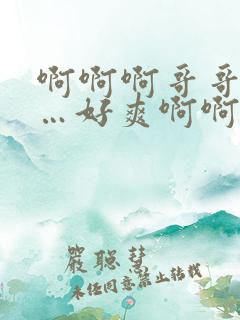 啊啊啊哥哥
…好爽啊啊
嚴聰慧
未经同意禁止转载